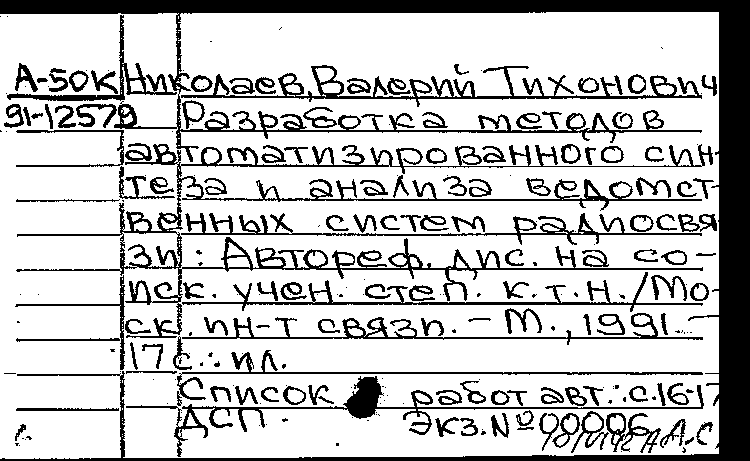 А-50К Николаев, Валерий Тихонович
91-12579 Разработка методов
автоматизированного син-
теза и анализа ведомст-
венных систем радиосвя
зи : Автореф. дис. на со-
иск. учен. степ. к.т.н./Мо-
ск. ин-т связи. - М., 1991. -
17 с.: ил.
Список работ авт.: с.16-17
ДСП. Экз.№00006